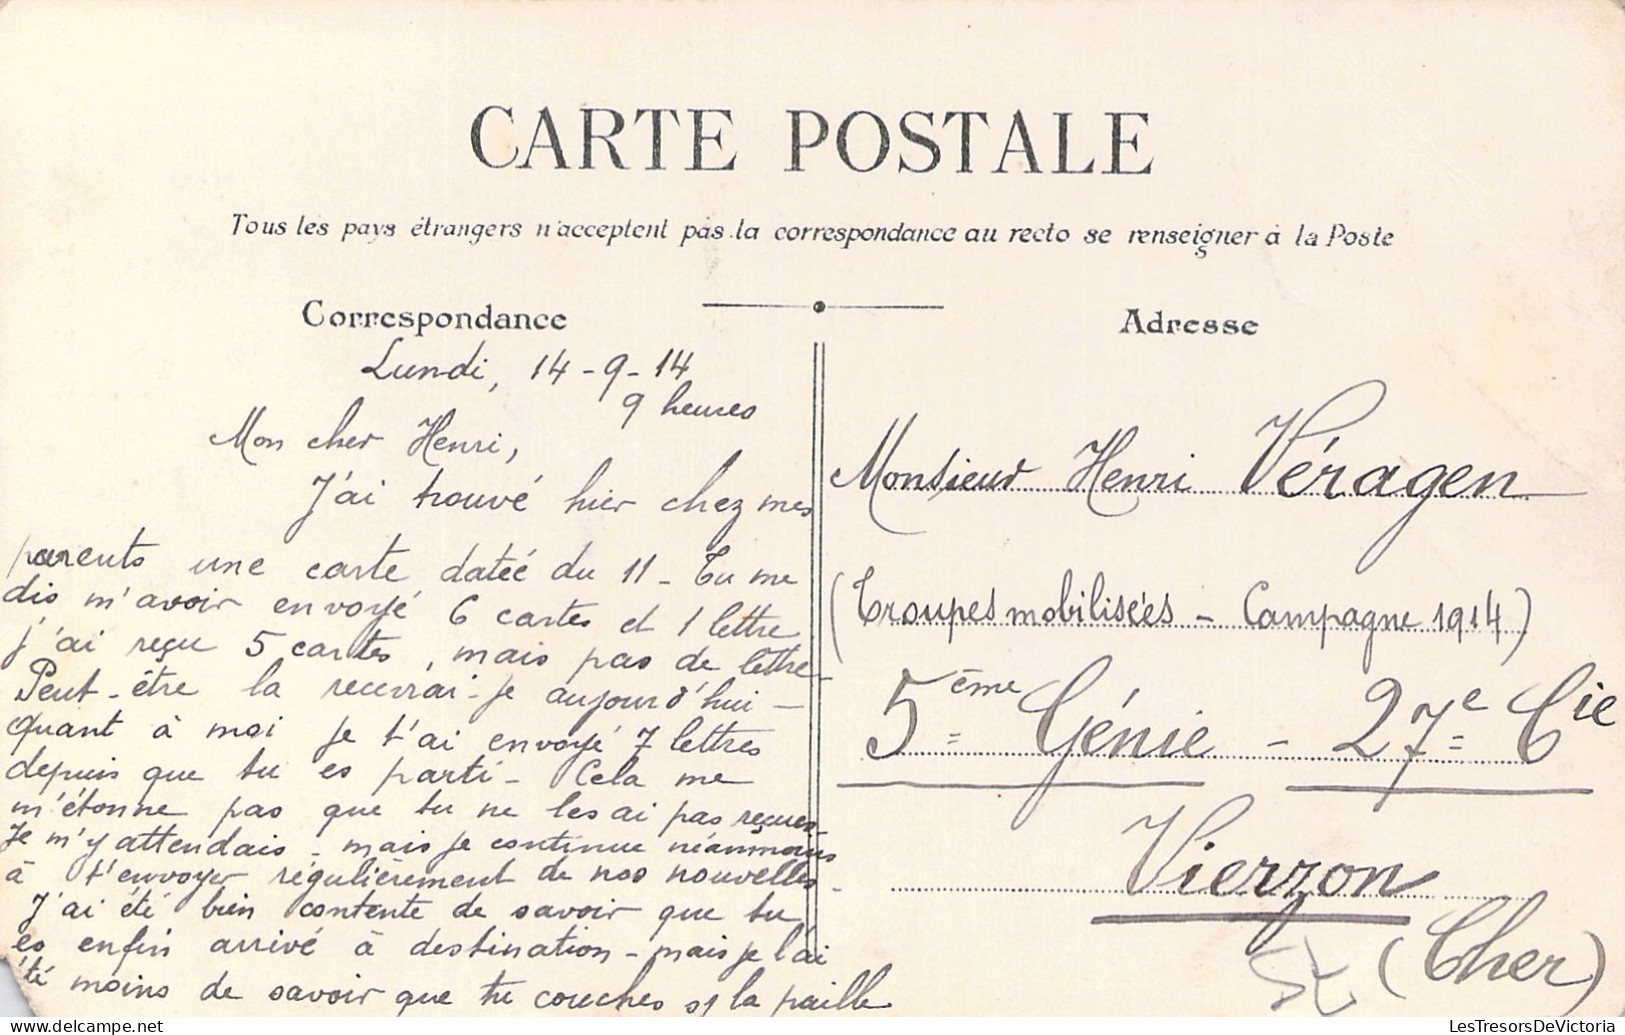 CARTE POSTALE
Tous les pays étrangers n'acceptent pas la correspondance au recto se renseigner à la Poste
Correspondance
Lundi, 14-9-14
9 heures
Mon cher Henri,
J'ai trouvé hier chez mes
parents une carte datée du 11 - Tu me
dis m'avoir envoyé 6 cartes et 1 lettre
j'ai reçu 5 cartes, mais pas de lettre -
Peut-être la recevrai-je aujourd'hui -
Quant à moi je t'ai envoyé 7 lettres
depuis que tu es parti - Cela me
m'étonne pas que tu ne les ai pas reçues
Je m'y attendais - mais je continue néanmoins
à t'envoyer régulièrement de nos nouvelles -
J'ai été bien contente de savoir que tu
es enfin arrivé à destination - mais je l'ai
été moins de savoir que tu couches sr la paille
Adresse
Monsieur Henri Véragen
(Troupes mobilisées - Campagne 1914)
5ème Génie - 27e Cie
Vierzon
(Cher)
LesTresorsDeVictoria